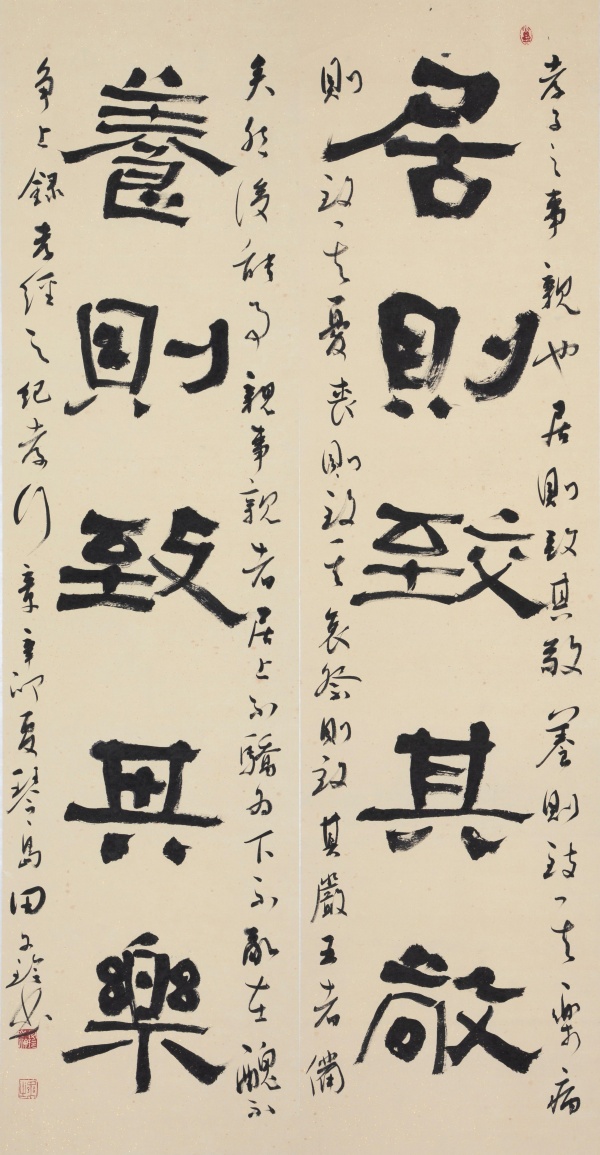 孝子之事親也居則致其敬養則致其樂病
居則致其敬
則致其憂喪則致其哀祭則致其嚴五者備
矣然後能事親事親者居上不驕為下不亂在醜不
養則致其樂
争上錄孝經之紀孝行章辛卯夏琴島田